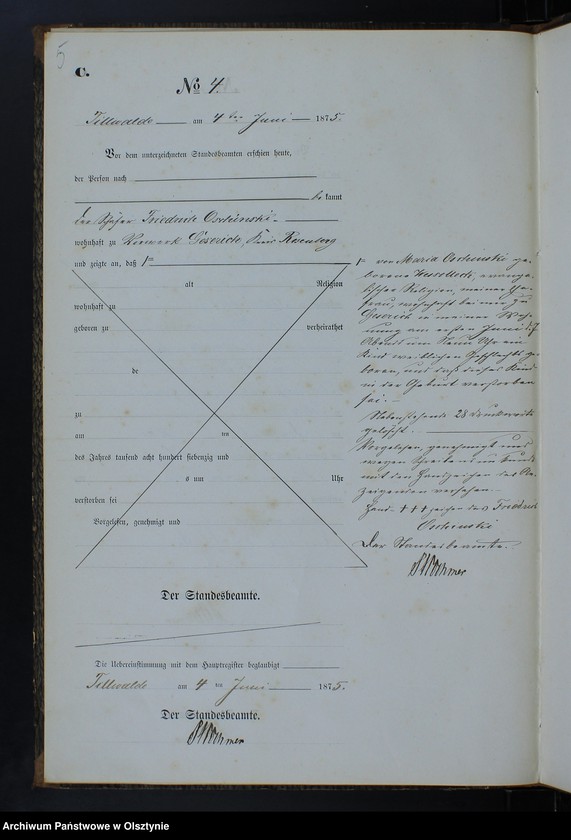 5
C.
No 4.
Tillwalde am 4ten Juni 1875.
Vor dem unterzeichneten Standesbeamten erschien heute,
der Person nach
bekannt
der Friedrich
wohnhaft zu Gosrich, Kreis Rosenberg
und zeigte an, daß
alt Religion
wohnhaft zu
geboren zu verheirathet
de
zu
am ten
des Jahres tausend acht hundert siebenzig und
s um Uhr
verstorben sei
Vorgelesen, genehmigt und
Der Standesbeamte.
von Maria ge-
borene evange-
lischer Religion, seiner Ehe-
frau, wohnhaft bei ihm zu
Gosrich in seiner Woh-
nung am ersten Juni d. J.
Abends um neun Uhr ein
Kind weiblichen Geschlechts ge-
boren, und daß dieses Kind
in der Geburt verstorben
sei.
Nebenstehende 28 Druckworte
gelöscht.
Vorgelesen, genehmigt und
wegen
mit den Handzeichen des An-
zeigenden versehen.
Hand +++ zeichen des Friedrich
Der Standesbeamte.
Die Uebereinstimmung mit dem Hauptregister beglaubigt
Tillwalde am 4ten Juni 1875.
Der Standesbeamte.
Archiwum Państwowe w Olsztynie